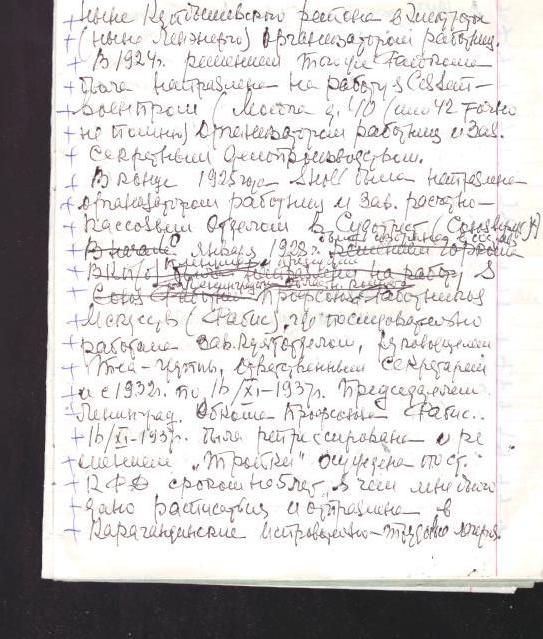 ныне Куйбышевского района в Электроток
(ныне Ленэнерго) Организатором работниц.
В 1924г. решением того же Райкома
была направлена на работу в
(Мойка д. 40 или 42 точно
не помню) Организатором работниц и Зав.
Секретным Делопроизводством.
В конце 1925 года вновь была направлена
организатором работниц и зав. расчетно-
Кассовым Отделом в Судотрест (Союзверфь)
В начале января 1928г. решением горкома
ВКП/б/ была направлена на работу в
Союз Рабочих Профсоюз Работников
Искусств (Рабис), где последовательно
работала Зав. Культотделом, руководителем
группы, ответственным секретарем
и с 1932г. по 16/XI-1937г. Председателем
Ленинград. Обкома Профсоюза Рабис..
16/XI-1937г. была репрессирована и ре
шением „Тройки" осуждена по ст.
КРД сроком на 5 лет, в чем мне было
дано расписаться и отправлена в
Карагандинские исправительно-трудовые лагеря.